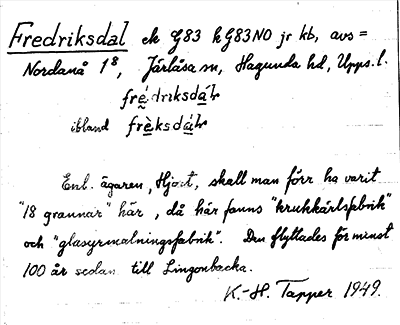 Fredriksdal ek G83 h G83NO jr kb, avs =
Nordanå 1⁸, Järlåsa sn, Hagunda hd, Upps. l.
fre̱´driksda̱´ɫ
ibland frè̱ksdá̱ɫ
Enl. ägaren, Hjort, skall man förr ha varit
"18 grannar" här, då här fanns "krukkärlsfabrik"
och "glasyrmalningsfabrik". Den flyttades för minst
100 år sedan till Lingonbacka.
K.-H. Tapper 1949.